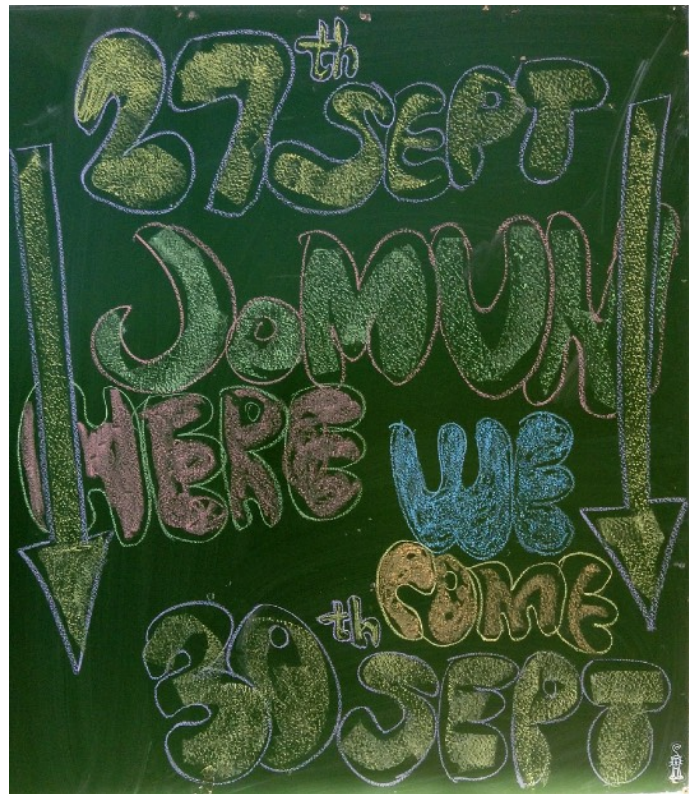 27th SEPT
JoMUN
HERE WE
COME
30th SEPT